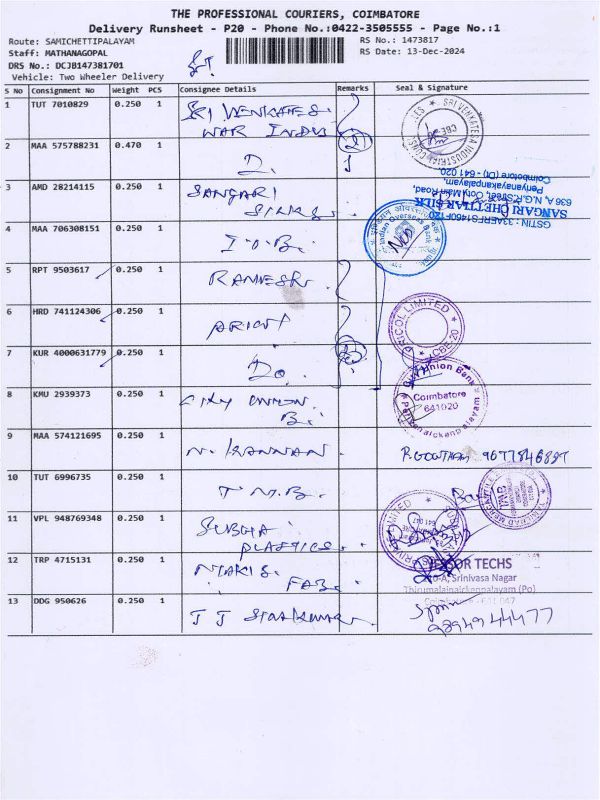 THE PROFESSIONAL COURIERS, COIMBATORE
Delivery Runsheet - P20 - Phone No.:0422-3505555 - Page No.:1
Route: SAMICHETTIPALAYAM
RS No.: 1473817
Staff: MATHANAGOPAL
RS Date: 13-Dec-2024
DRS No.: DCJB147381701
Vehicle: Two Wheeler Delivery
S No Consignment No Weight PCS Consignee Details Remarks Seal & Signature
1 TUT 7010829 0.250 1 SRI VENKATES
WAR INDUS
2 MAA 575788231 0.470 1 D.
3 AMD 28214115 0.250 1 SANGARI
SILKS
GSTIN : 33AERFS1460F1ZO
SANGARI CHETTIAR SILK
636 A, N.G.R. Street, Coty Main Road,
Periyanayakanpalayam,
Coimbatore (Dt) - 641 020.
4 MAA 706308151 0.250 1 I.O.B.
Indian Overseas Bank
5 RPT 9503617 0.250 1 RAMESH
6 HRD 741124306 0.250 1 PRICOL
PRICOL LIMITED
CBE-20
7 KUR 4000631779 0.250 1 Do.
8 KMU 2939373 0.250 1 CITY UNION
B.
City Union Bank
Coimbatore
641020
9 MAA 574121695 0.250 1 N. KANNAN P. GOWTHAM
10 TUT 6996735 0.250 1 T M.B.
11 VPL 948769348 0.250 1 SUBHA
PLASTICS
12 TRP 4715131 0.250 1 FAB
TECHS
Srinivasa Nagar
Thirumalainaickenpalayam (Po)
Coimbatore - 641 047
13 DDG 950626 0.250 1 T J SIVAKUMAR